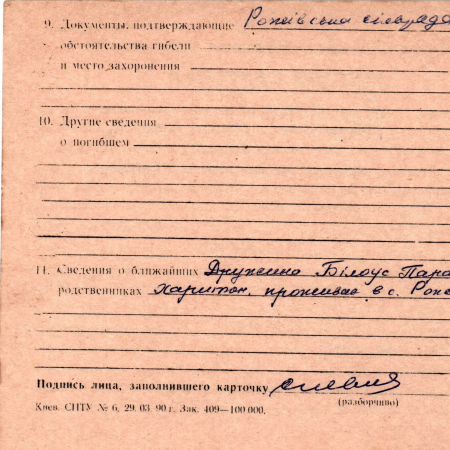 9. Документы, подтверждающие Рожівська сільрада
обстоятельства гибели
и место захоронения
10. Другие сведения
о погибшем
11. Сведения о ближайших Дружина Білоус Пара
родственниках Харитон. проживає в с. Рож
Подпись лица, заполнившего карточку
(разборчиво)
Киев. СПТУ № 6. 29. 03. 90 г. Зак. 409—100 000.